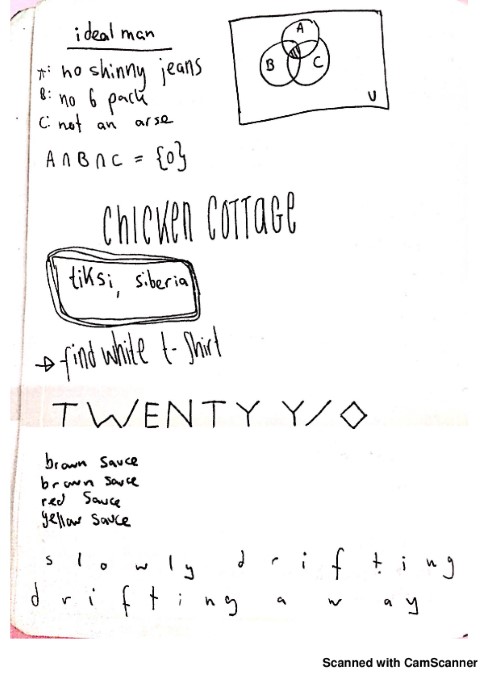 ideal man
A: no skinny jeans
B: no 6 pack
C: not an arse
A∩B∩C = {0}
A
B C
U
chicken cottage
tiksi, siberia
→ find white t-shirt
TWENTY Y/◇
brown sauce
brown sauce
red sauce
yellow sauce
slowly drifting
drifting away
Scanned with CamScanner